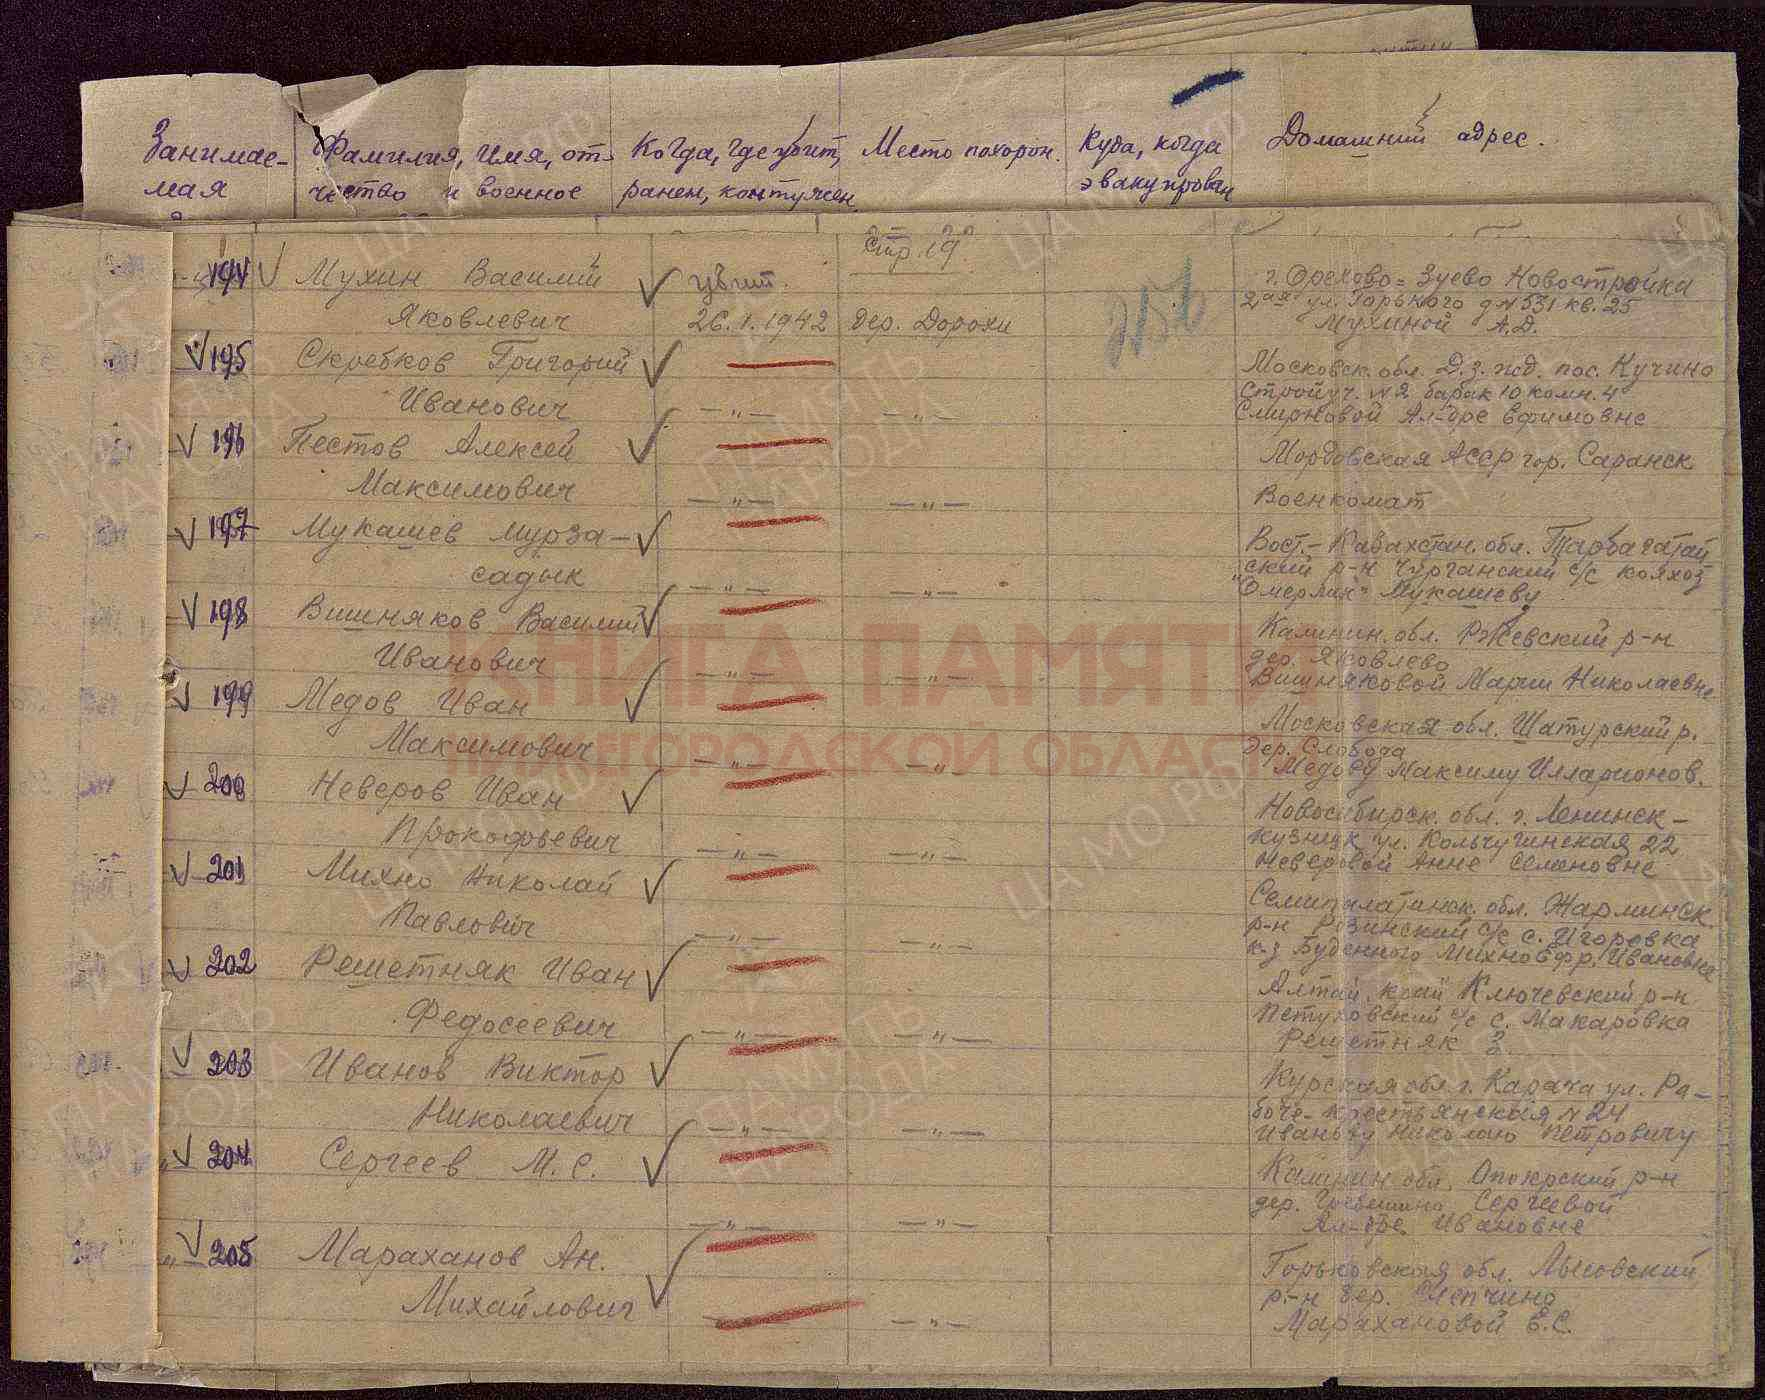 Занимае- Фамилия, имя, от- Когда, где убит, Место похорон. Куда, когда Домашний адрес.
мая чество и военное ранен, контужен эвакуирован
стр. 19
194 Мухин Василий убит. г. Орехово-Зуево Новостройка
Яковлевич 26.1.1942 дер. Дорохи 2ая ул. Горького д N 531 кв. 25
Мухиной А.Д.
195 Скребков Григорий Московск. обл. Д.з. жд. пос. Кучино
Иванович —"— —"— Стройуч. N2 барак 10 комн. 4
Смирновой Ал-дре Ефимовне
196 Пестов Алексей Мордовская АССР гор. Саранск
Максимович —"— —"— Военкомат
197 Мукашев Мурза- Вост.-Казахстан. обл. Тарбагатай
садык —"— —"— ский р-н Чурганский с/с колхоз
Мукашеву
198 Вишняков Василий Калинин. обл. Ржевский р-н
Иванович —"— —"— дер. Яковлево
Вишняковой Марии Николаевне
199 Медов Иван Московская обл. Шатурский р.
Максимович —"— —"— дер. Слобода
Медову Максиму Илларионов.
200 Неверов Иван Новосибирск. обл. г. Ленинск-
Прокофьевич —"— —"— кузнецк ул. Кольчугинская 22
Неверовой Анне Семеновне
201 Михно Николай Семипалатинск. обл. Жарминск.
Павлович —"— —"— р-н с/с с. Игоревка
к-з Буденного Михно Фр. Ивановне
202 Решетняк Иван Алтай. край Ключевский р-н
Федосеевич —"— —"— Петуховский с/с с. Макаровка
Решетняк ?
203 Иванов Виктор Курская обл. г. Карача ул. Ра-
Николаевич —"— —"— боче-крестьянская N 24
Иванову Николаю Петровичу
204 Сергеев М.С. Калинин. обл. р-н
—"— —"— дер. Сергеевой
Ал-дре Ивановне
" 205 Мараханов Ан. Горьковская обл. Лысковский
Михайлович —"— р-н дер. Слепчино
Марахановой Е.С.
КНИГА ПАМЯТИ
НИЖЕГОРОДСКОЙ ОБЛАСТИ
ПАМЯТЬ НАРОДА
ЦА МО РФ